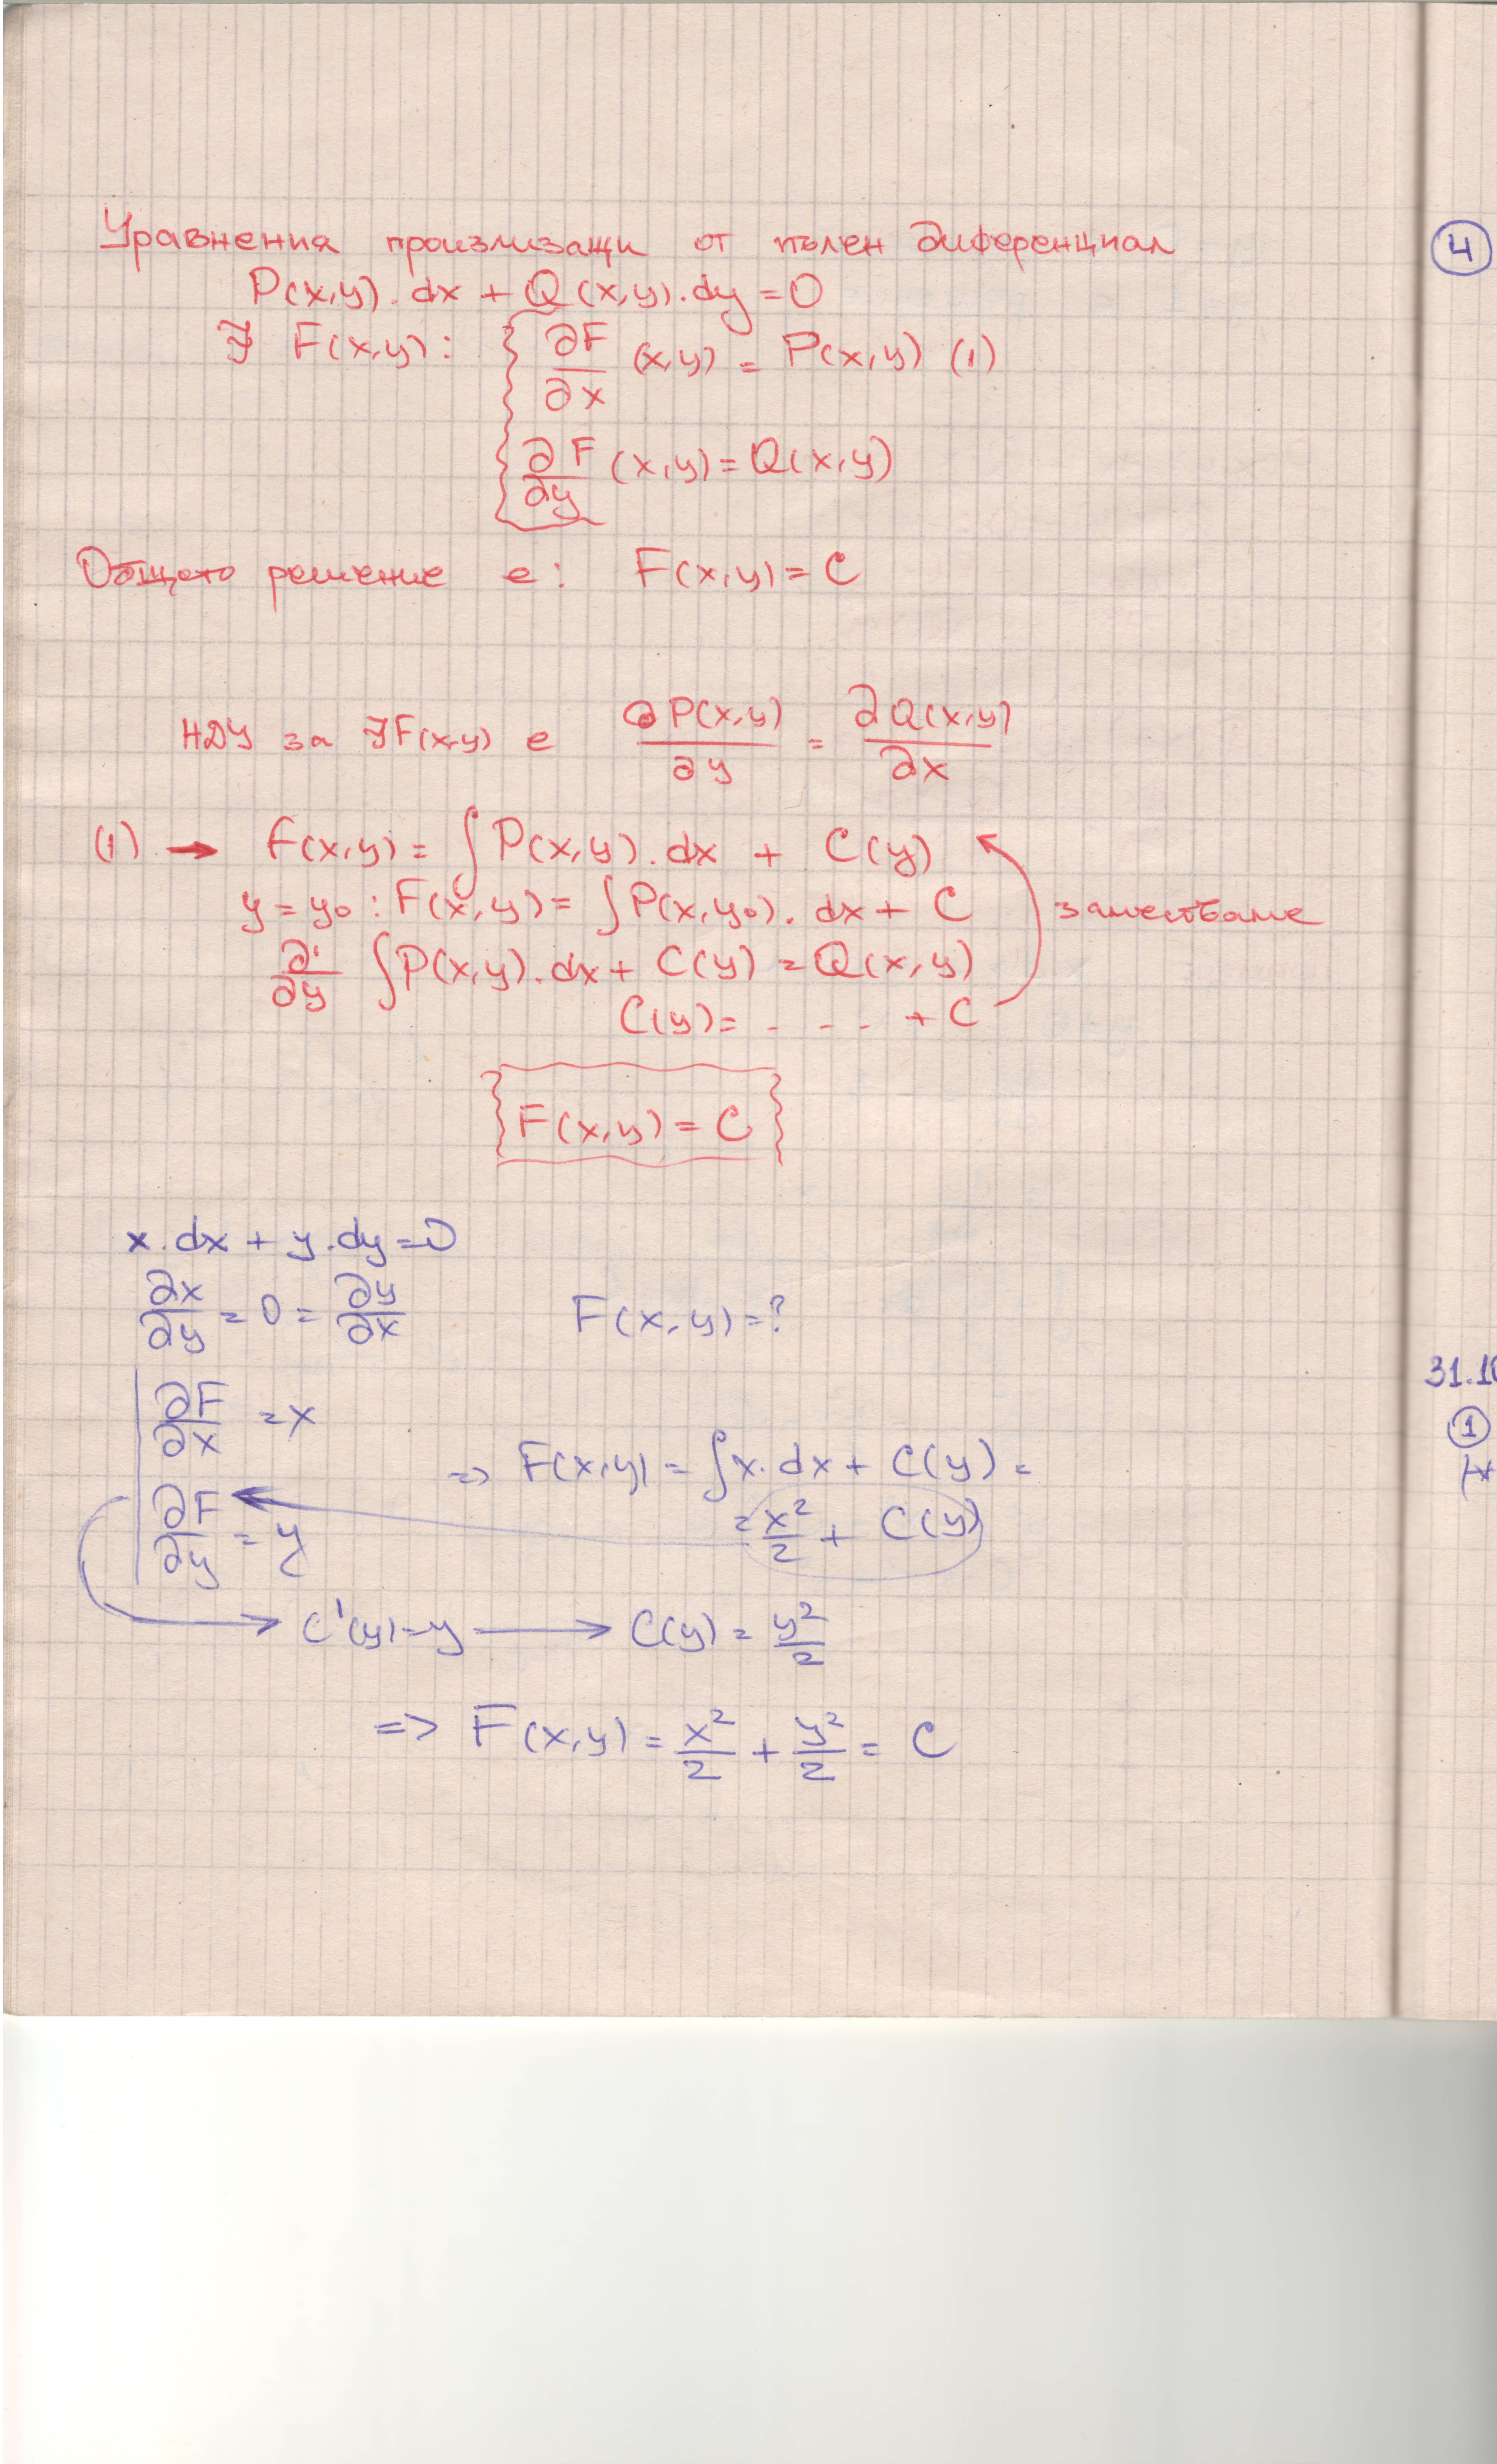 Уравнения произлизащи от пълен диференциал
P(x,y). dx + Q(x,y).dy = 0
∃ F(x,y): { ∂F/∂x (x,y) = P(x,y) (1)
∂F/∂y (x,y) = Q(x,y)
Общото решение е: F(x,y) = C
НДУ за ∃F(x,y) е ∂P(x,y)/∂y = ∂Q(x,y)/∂x
(1) → F(x,y) = ∫P(x,y). dx + C(y)
y = y₀ : F(x,y) = ∫P(x,y₀). dx + C заместваме
∂/∂y ∫P(x,y).dx + C(y) = Q(x,y)
C(y) = - - - - + C
F(x,y) = C
x.dx + y.dy = 0
∂x/∂y = 0 = ∂y/∂x F(x,y) = ?
∂F/∂x = x
⇒ F(x,y) = ∫x.dx + C(y) =
∂F/∂y = y
= x²/2 + C(y)
C'(y) = y → C(y) = y²/2
=> F(x,y) = x²/2 + y²/2 = C
4
31.10
1